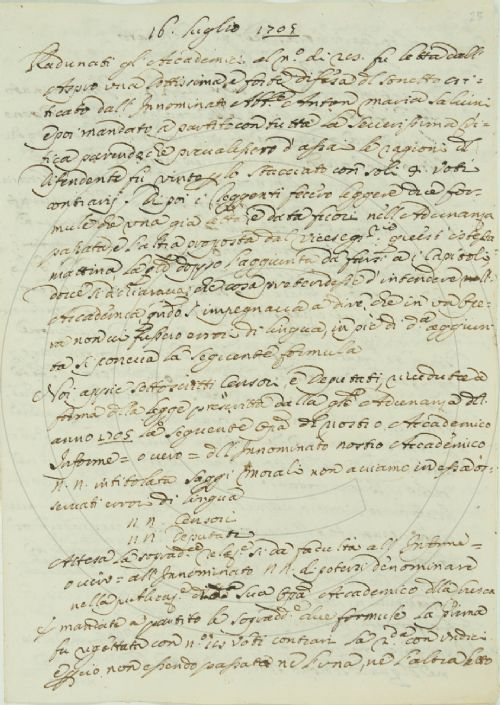 16. Luglio 1705
Radunati gl'Accademici al n.o di fu letta dall'
una dottissima, e forte difesa del sonetto cri-
ticato dall'Innominato Ab.e Anton Maria Salvini
e poi mandato a partito con tutta la severissima cri-
tica parendo che prevalessero d'assai le ragioni del
difendente fu vinto lo stacciato con soli 9 voti
contrarij. Di poi i Reggenti fecero leggere due for-
mule che una già letta e data fuori nell'Adunanza
passata e l'altra proposta dal questa istessa
mattina la doppo l'aggiunta da farsi a i Capitoli
dove si dichiarava che cosa pretendesse d'intendere nell'
Accademia qñdo s'impegnava a dire che in un'ope-
ra non vi fussero errori di lingua, in pie di d.a aggiun-
ta si poneva la seguente formula
Noi appiè sottoscritti Censori, e Deputati, riveduta a
forma della legge prescritta dalla Adunanza dell'
anno 1705 la seguente Opa del nostro Accademico
Informe = ovvero = dell'Innominato nostro Accademico
N. N. intitolata Saggi Morali non aviamo in essa os-
servati errori di lingua
N. N. Censori
N. N. Deputati
Attesa la sopradª si dà facultà all'Informe =
ovvero = all'Innominato N. N. di potersi denominare
nella pubblicaz.e sua Opa Accademico della Crusca
E mandate a partito le sopradᵉ due formule la prima
fu rigettata con n.o voti contrari la 2.a con undici
e perciò non essendo passata nè l'una, nè l'altra